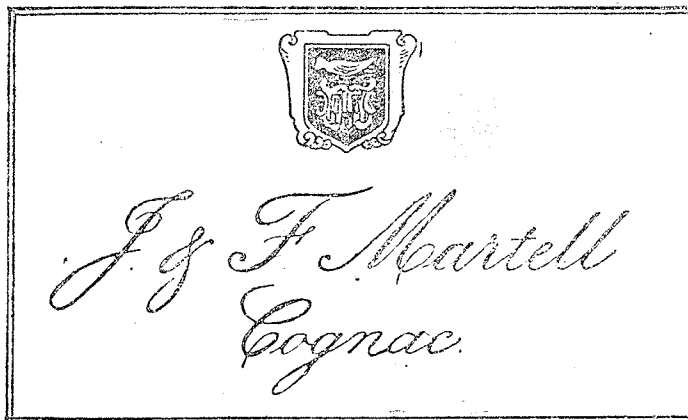 J. & F Martell
Cognac.